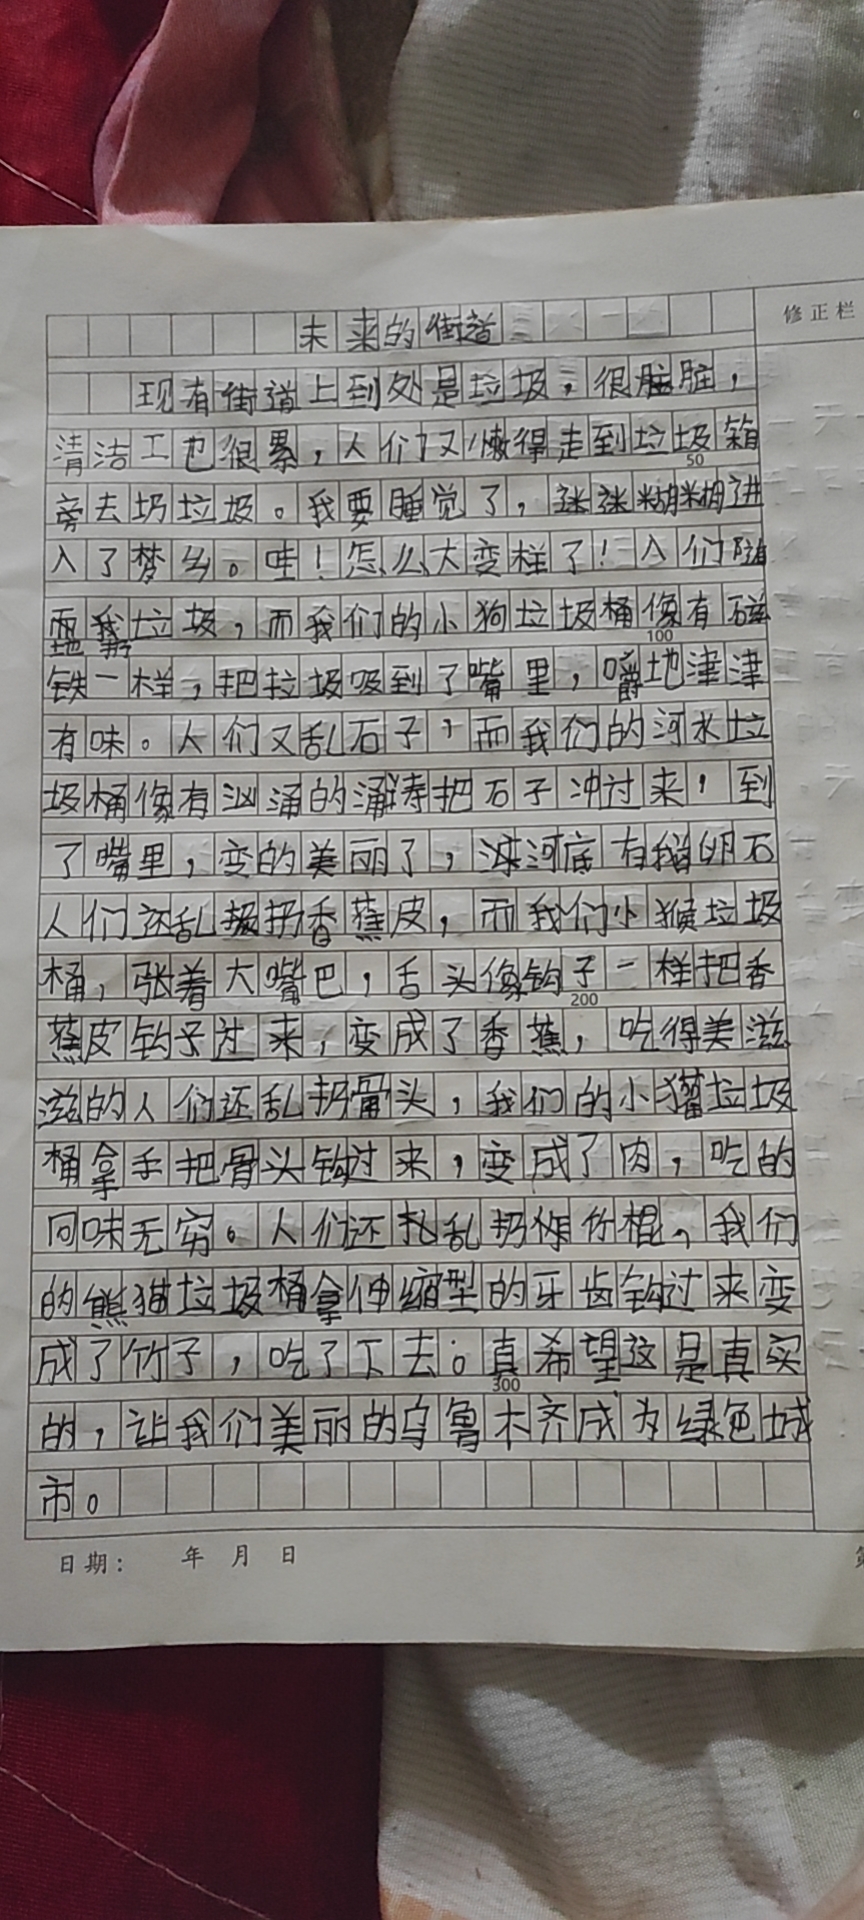 未来的街道
现有街道上到处是垃圾，很脏脏，
清洁工也很累，人们又懒得走到垃圾箱
50
旁去扔垃圾。我要睡觉了，迷迷糊糊进
入了梦乡。哇！怎么大变样了！人们随
地扔垃圾，而我们的小狗垃圾桶像有磁
100
铁一样，把垃圾吸到了嘴里，嚼地津津
有味。人们又乱石子，而我们的河水垃
圾桶像有汹涌的涛把石子冲过来，到
了嘴里，变的美丽了，河底有鹅卵石
人们还乱扔香蕉皮，而我们小猴垃圾
桶，张着大嘴巴，舌头像钩子一样把香
200
蕉皮钩子过来，变成了香蕉，吃得美滋
滋的人们还乱扔骨头，我们的小猫垃圾
桶拿手把骨头钩过来，变成了肉，吃的
回味无穷。人们还乱扔竹棍，我们
的熊猫垃圾桶拿伸缩型的牙齿钩过来变
成了竹子，吃了下去。真希望这是真实
300
的，让我们美丽的乌鲁木齐成为绿色城
市。
日期： 年 月 日
修正栏